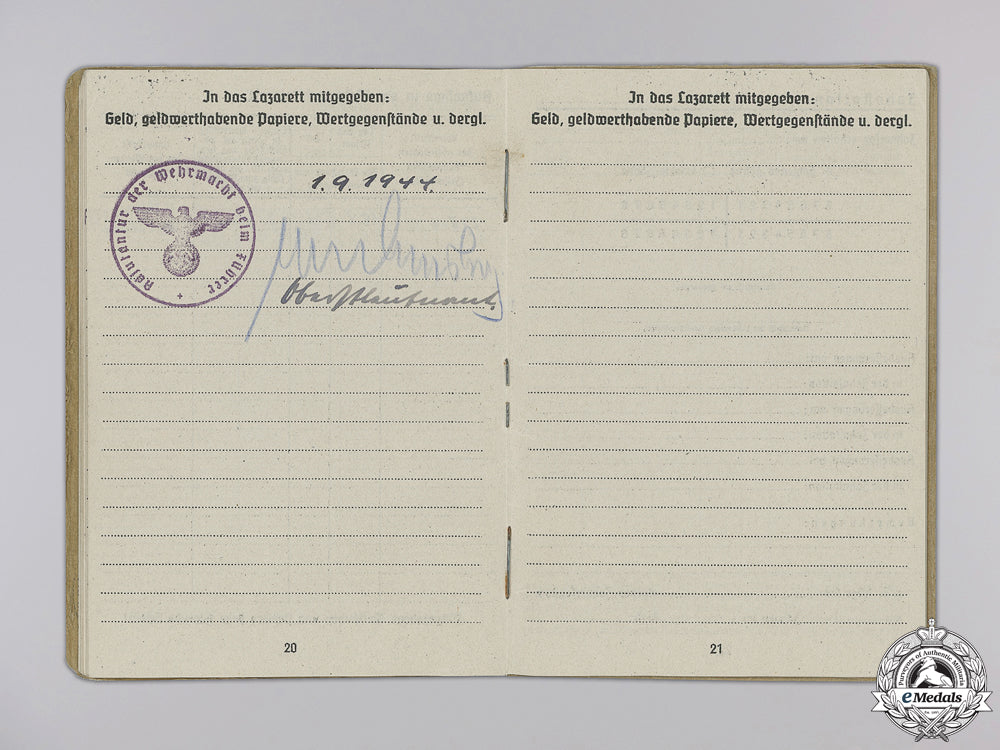 In das Lazarett mitgegeben:
Geld, geldwerthabende Papiere, Wertgegenstände u. dergl.
Adjutantur der Wehrmacht beim Führer
1.9.1944.
Oberstleutnant.
20
In das Lazarett mitgegeben:
Geld, geldwerthabende Papiere, Wertgegenstände u. dergl.
21
Purveyors of Authentic Militaria
eMedals